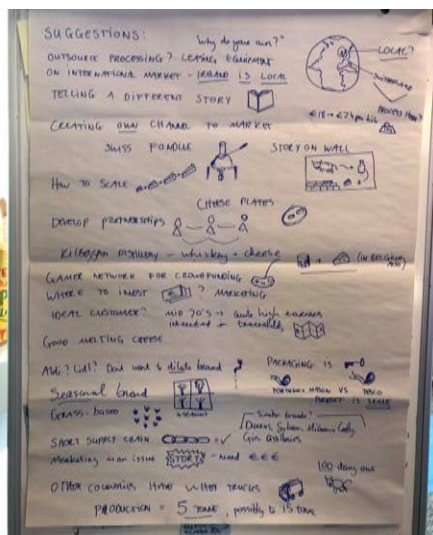 SUGGESTIONS:
"Why do your own?"
LOCAL?
OUTSOURCE PROCESSING? LEASING EQUIPMENT
ON INTERNATIONAL MARKET - IRELAND IS LOCAL
SWITZERLAND
TELLING A DIFFERENT STORY
PROCESS
€18 → €24 per kilo
CREATING OWN CHANNEL TO MARKET
SWISS FONDUE
STORY ON WALL
HOW TO SCALE
CHEESE PLATES
DEVELOP PARTNERSHIPS
Kilbeggan Distillery - whiskey + cheese
+ (IN BELGIUM ALSO)
GAMER NETWORK FOR CROWDFUNDING
WHERE TO INVEST ? MARKETING
IDEAL CUSTOMER? MID 20's → quite high earners
interested in traceability
GOOD MELTING CHEESE
Aldi? Lidl? Dont want to dilute brand
PACKAGING IS
FORTNUM + MASON VS TESCO
PRODUCT IS SAME
Seasonal brand
4 SEASONS
GRASS-BASED
Similar brands?
Gin distilleries
SHORT SUPPLY CHAIN = ✓
Marketing is an issue STORY - need €€€
100 dairy cows
OTHER COUNTRIES HAVE WHEY TRUCKS
PRODUCTION = 5 TONNE, possibly to 15 tonne